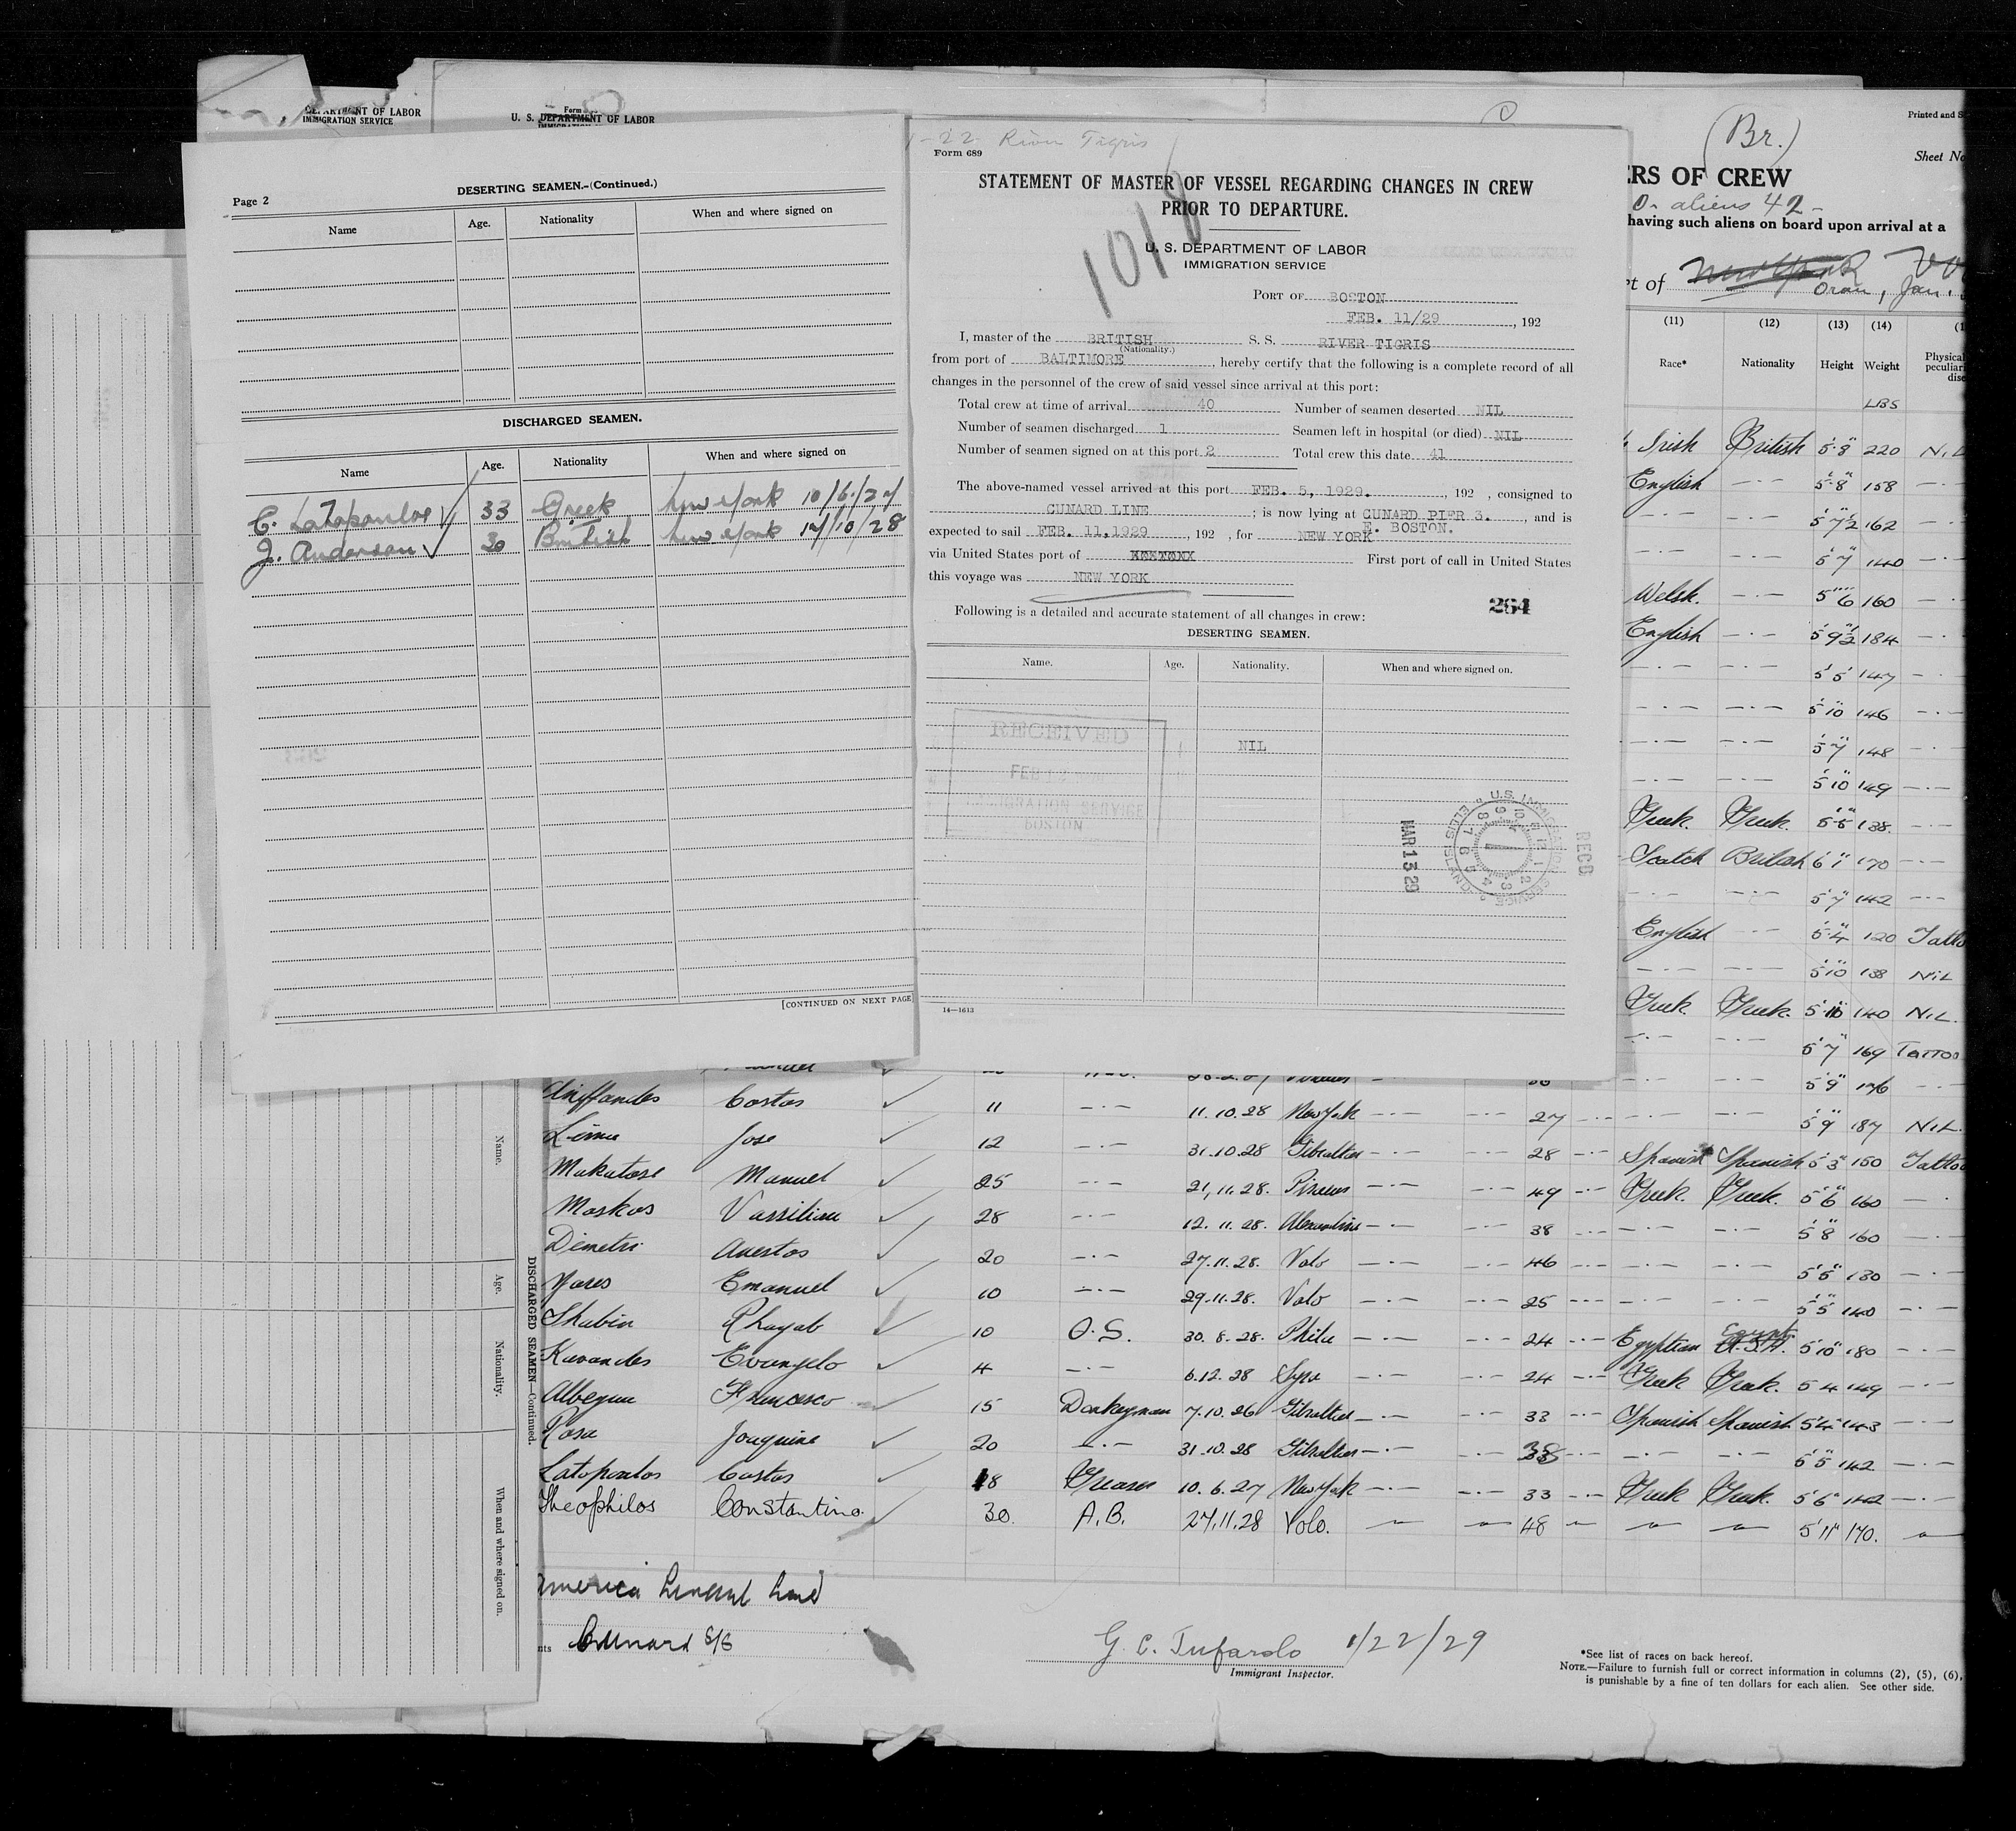 DEPARTMENT OF LABOR
IMMIGRATION SERVICE
Form
U. S. DEPARTMENT OF LABOR
Page 2
DESERTING SEAMEN.-(Continued.)
Name Age. Nationality When and where signed on
DISCHARGED SEAMEN.
Name Age. Nationality When and where signed on
C. Latopoulos 33 Greek New York 10/6/27
J. Anderson 30 British New York 17/10/28
[CONTINUED ON NEXT PAGE]
1-22 River Tigris
Form 689
1018
STATEMENT OF MASTER OF VESSEL REGARDING CHANGES IN CREW
PRIOR TO DEPARTURE.
U. S. DEPARTMENT OF LABOR
IMMIGRATION SERVICE
PORT OF BOSTON
FEB. 11/29, 192
I, master of the BRITISH S. S. RIVER TIGRIS
(Nationality.)
from port of BALTIMORE, hereby certify that the following is a complete record of all
changes in the personnel of the crew of said vessel since arrival at this port:
Total crew at time of arrival 40 Number of seamen deserted NIL
Number of seamen discharged 1 Seamen left in hospital (or died) NIL
Number of seamen signed on at this port 2 Total crew this date 41
The above-named vessel arrived at this port FEB. 5, 1929., 192 , consigned to
CUNARD LINE ; is now lying at CUNARD PIER 3. , and is
E. BOSTON.
expected to sail FEB. 11,1929 , 192 , for NEW YORK
via United States port of First port of call in United States
this voyage was NEW YORK
264
Following is a detailed and accurate statement of all changes in crew:
DESERTING SEAMEN.
Name. Age. Nationality. When and where signed on.
NIL
RECEIVED
FEB 12
IMMIGRATION SERVICE
BOSTON
MAR 13 29
U.S. IMMIGRATION SERVICE ELLIS ISLAND
RECD
14—1613
(Br.)
Printed and S
Sheet No
ERS OF CREW
aliens 42
having such aliens on board upon arrival at a
rt of
Oran, Jan.
(11) (12) (13) (14) (1
Race* Nationality Height Weight Physical
peculiar
dise
LBS
Irish British 5'8" 220 NiL
English —·— 5'8" 158 —·—
—·— —·— 5'7½ 162 —·—
—·— —·— 5'7" 140 —·—
Welsh. —·— 5'6" 160 —·—
English —·— 5'9½ 184 —·—
—·— —·— 5'5" 147 —·—
—·— —·— 5'10 146 —·—
—·— —·— 5'7" 148 —·—
—·— —·— 5'10" 149 —·—
Greek. Greek. 5'5" 138. —·—
Scotch British 6'1" 170 —·—
—·— —·— 5'7" 142 —·—
English —·— 5'4" 120 Tatto
—·— —·— 5'10" 138 NiL
Greek. Greek. 5'10 140 NiL.
—·— —·— 5'7" 169 Tattoo
—·— —·— 5'9" 176 —·—
Costas 11 —·— 11.10.28 New York —·— —·— 27 —·— —·— —·— 5'9" 187 NiL.
Jose 12 —·— 31.10.28 Gibraltar —·— —·— 28 —·— Spanish Spanish 5'3" 150 Tattoo
Manuel 25 —·— 21,11.28. Piraeus —·— —·— 49 —·— Greek. Greek. 5'6" 160 —·—
Moskos Vassiliou 28 —·— 12.11.28. Alexandria —·— —·— 38 —·— —·— —·— 5'8" 160 —·—
Demetri 20 —·— 27.11.28. Volo —·— —·— 46 —·— —·— —·— 5'5" 130 —·—
Emanuel 10 —·— 29.11.28. Volo —·— —·— 25 —·— —·— —·— 5'5" 140 —·—
Shabin Rhayab 10 O.S. 30.8.28. Phila —·— —·— 24 —·— Egyptian Egypt. 5'10" 180 —·—
Evangelo 4 —·— 6.12.28 Syra —·— —·— 24 —·— Greek Greek. 5'4 149 —·—
Francesco 15 Donkeyman 7.10.26 Gibraltar —·— —·— 33 —·— Spanish Spanish 5'4" 143 —·—
Rosa Joaquine 20 —·— 31.10.28 Gibraltar —·— —·— 38 —·— —·— —·— 5'5" 142 —·—
Latopoulos Costas 18 Greaser 10.6.27 New York —·— —·— 33 —·— Greek Greek. 5'6" 142 —·—
Theophilos Constantino. 30. A.B. 27.11.28 Volo. — — 48 — — — 5'11" 170. —
America Levant Line
nts Cunard S/S
G. C. Tufarolo 1/22/29
Immigrant Inspector.
*See list of races on back hereof.
NOTE.—Failure to furnish full or correct information in columns (2), (5), (6),
is punishable by a fine of ten dollars for each alien. See other side.
DISCHARGED SEAMEN—Continued.
Name. Age. Nationality. When and where signed on.